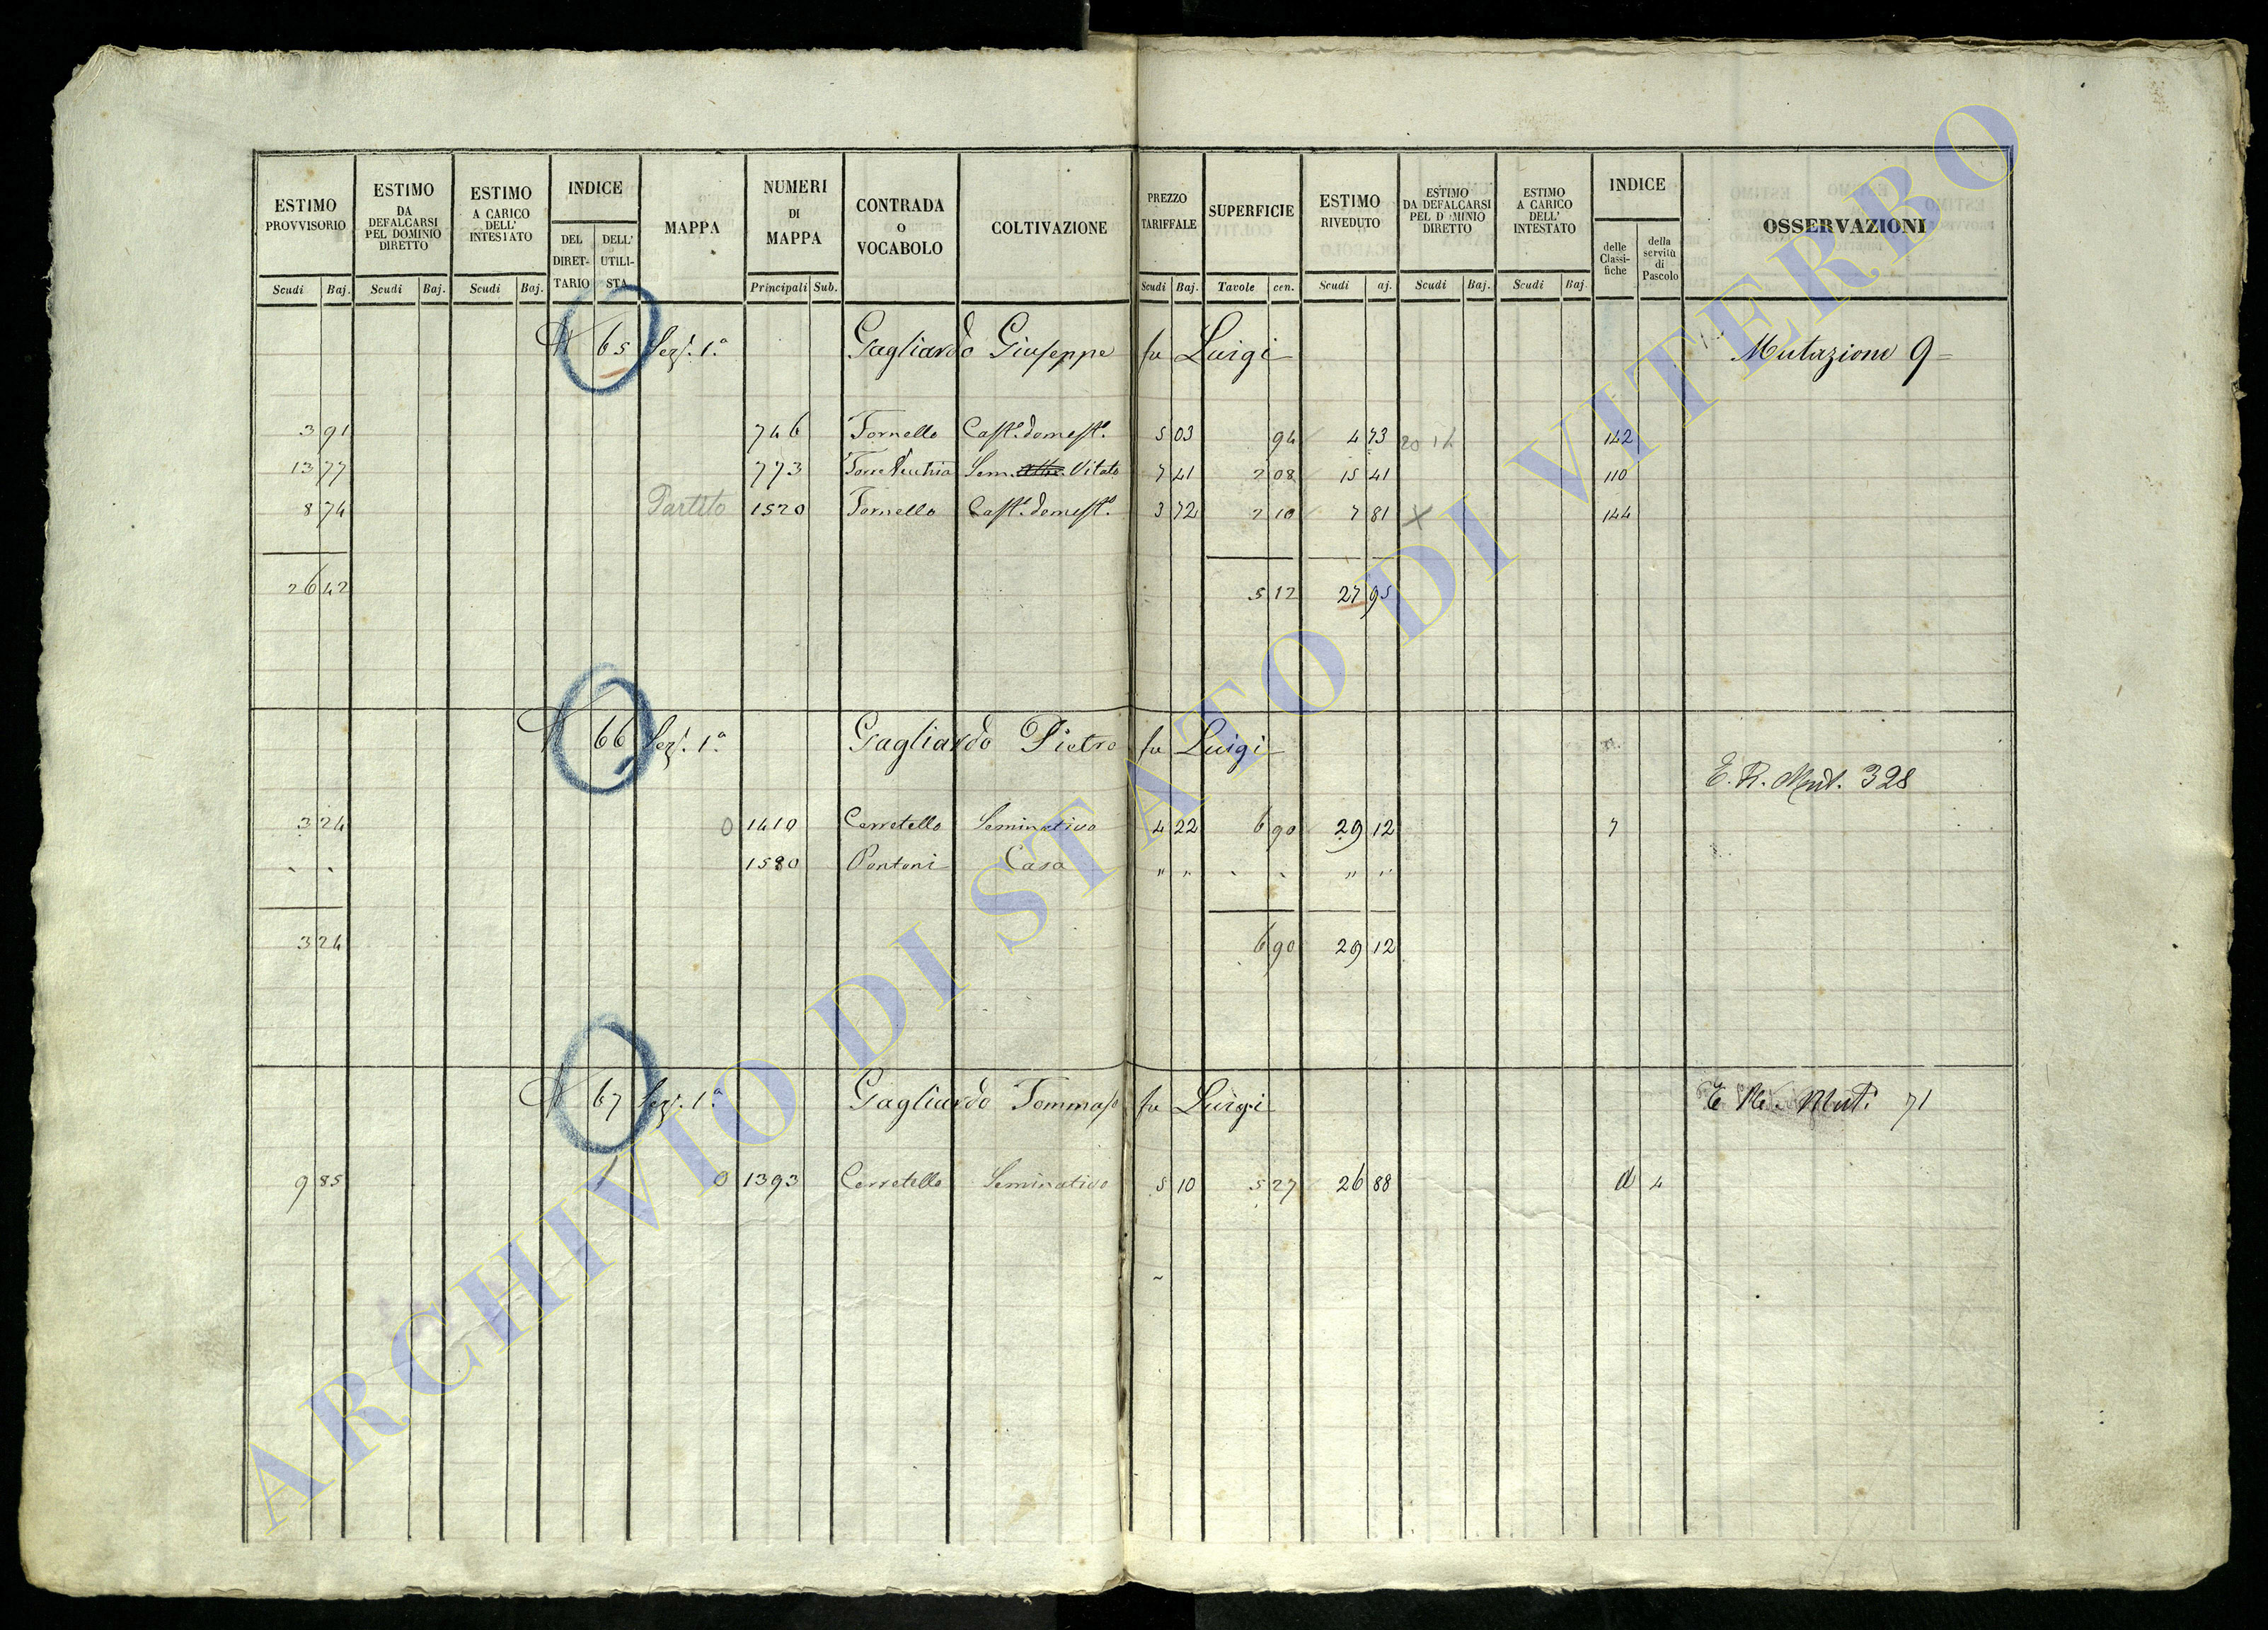 ESTIMO PROVVISORIO Scudi Baj.
ESTIMO DA DEFALCARSI PEL DOMINIO DIRETTO Scudi Baj.
ESTIMO A CARICO DELL' INTESTATO Scudi Baj.
INDICE DEL DIRETTARIO DELL' UTILISTA
MAPPA
NUMERI DI MAPPA Principali Sub.
CONTRADA o VOCABOLO
COLTIVAZIONE
PREZZO TARIFFALE Scudi Baj.
SUPERFICIE Tavole cen.
ESTIMO RIVEDUTO Scudi aj.
ESTIMO DA DEFALCARSI PEL D MINIO DIRETTO Scudi Baj.
ESTIMO A CARICO DELL' INTESTATO Scudi Baj
INDICE delle Classifiche della servitù di Pascolo
OSSERVAZIONI
N 65 Sez. 1.ª Gagliardo Giuseppe fu Luigi Mutazione 9
3 91 746 Tornello Cast.º domest.º 5 03 94 4 73 142
13 77 773 Torre Vecchia Sem. Vitato 7 41 2 08 15 41 110
8 74 Partito 1520 Tornello Cast.º domest.º 3 72 2 10 7 81 X 144
26 42 5 12 27 95
N 66 Sez. 1.ª Gagliardo Pietro fu Luigi
E. R. Mut. 328
3 24 0 1410 Cerretello Seminativo 4 22 6 90 29 12 7
1580 Pontoni Casa " " " "
3 24 6 90 29 12
N 67 Sez. 1.ª Gagliardo Tommaso fu Luigi Mut. 71
9 85 0 1393 Cerretello Seminativo 5 10 5 27 26 88 4
ARCHIVIO DI STATO DI VITERBO